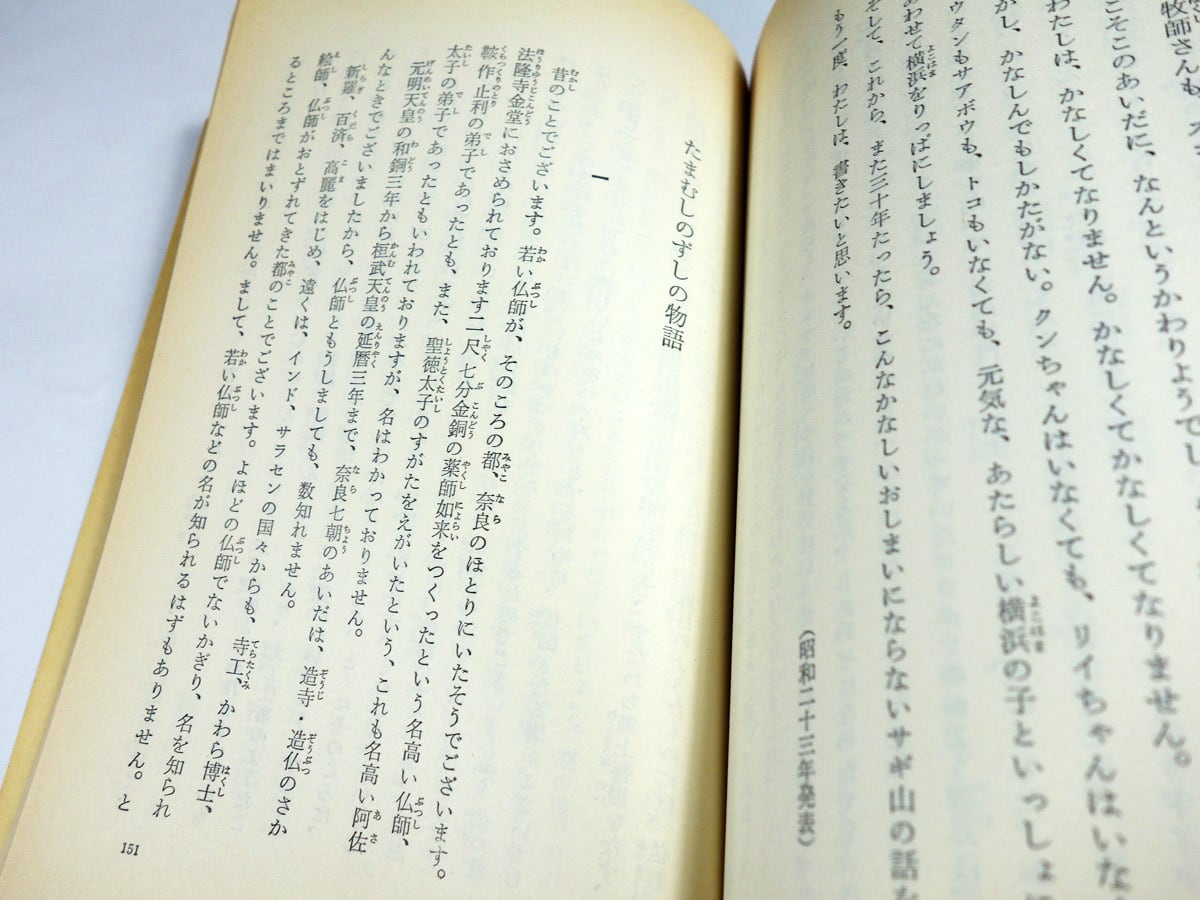 牧師さんも、
こそこのあいだに、なんというかわりようでし
わたしは、かなしくてなりません。かなしくてかなしくてなりません。
かし、かなしんでもしかたがない。クンちゃんはいなくても、リイちゃんはいな
ウタンもサアボウも、トコもいなくても、元気な、あたらしい横浜の子といっしょに
あわせて横浜をりっぱにしましょう。
そして、これから、また三十年たったら、こんなかなしいおしまいにならないサギ山の話を
もう一度、わたしは、書きたいと思います。
(昭和二十三年発表)
たまむしのずしの物語
一
昔のことでございます。若い仏師が、そのころの都、奈良のほとりにいたそうでございます。
法隆寺金堂におさめられております二尺七分金銅の薬師如来をつくったという名高い仏師、
鞍作止利の弟子であったとも、また、聖徳太子のすがたをえがいたという、これも名高い阿佐
太子の弟子であったともいわれておりますが、名はわかっておりません。
元明天皇の和銅三年から桓武天皇の延暦三年まで、奈良七朝のあいだは、造寺・造仏のさか
んなときでございましたから、仏師ともうしましても、数知れません。
新羅、百済、高麗をはじめ、遠くは、インド、サラセンの国々からも、寺工、かわら博士、
絵師、仏師がおとずれてきた都のことでございます。よほどの仏師でないかぎり、名を知られ
るところまではまいりません。まして、若い仏師などの名が知られるはずもありません。と
151